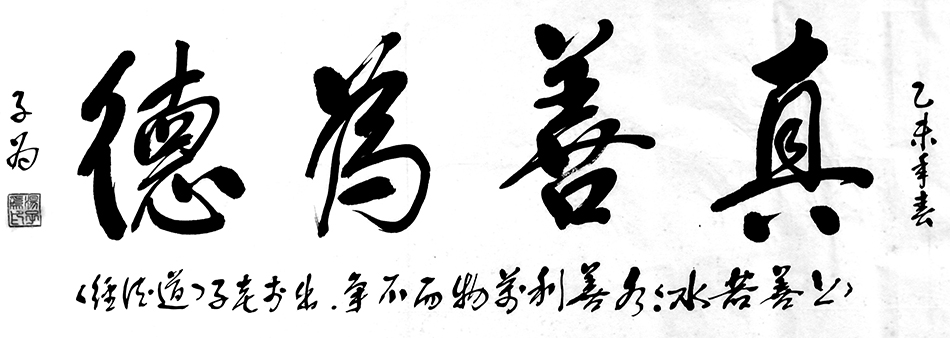 乙未年春
真善為德
《上善若水》水善利萬物而不争.出於老子《道德经》
子為